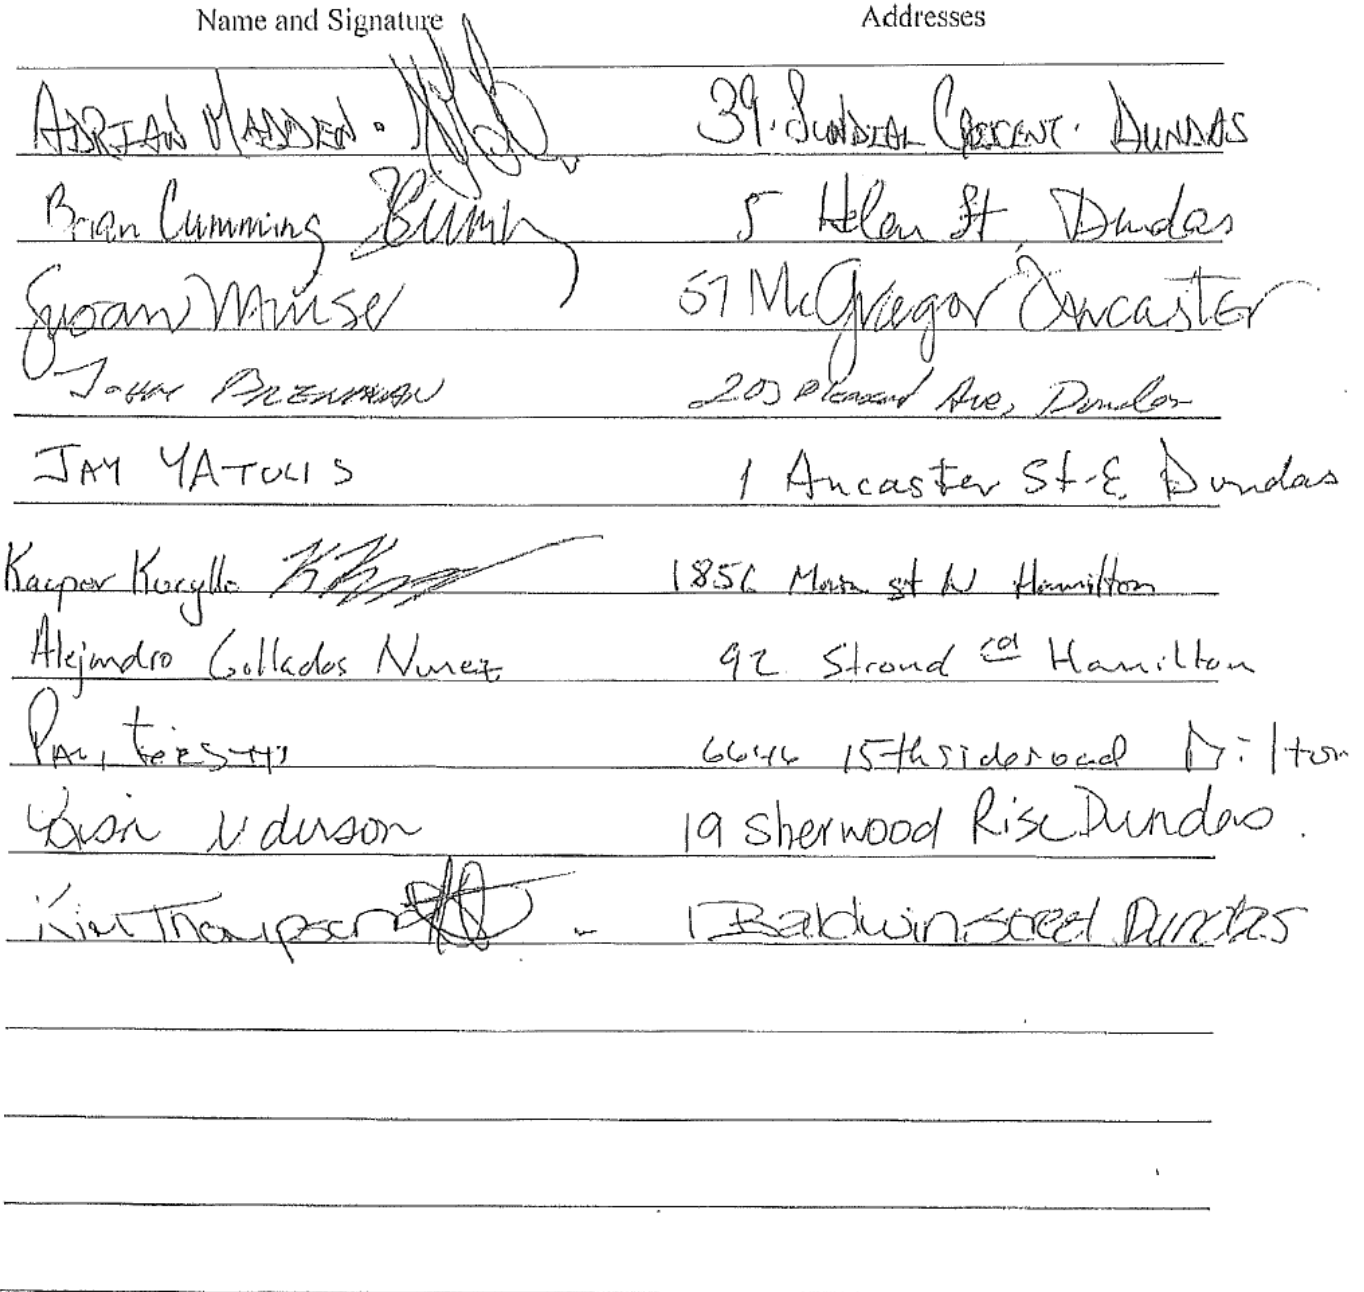 Name and Signature Addresses
ADRIAN MADDEN. 39. SUNDIAL CRESCENT. DUNDAS
Brian Cumming 5 Helen St, Dundas
Susan Muise 57 McGregor Ancaster
JOHN BRENNAN 203 Pleasant Ave, Dundas
JAY YATULIS 1 Ancaster St. E, Dundas
Kacper Kurylło 1856 Main st W Hamilton
Alejandro Collados Nunez 92 Stroud cd Hamilton
PAUL 6646 15th sideroad Milton
19 Sherwood Rise Dundas.
Kim Thompson 1 Baldwin street Dundas